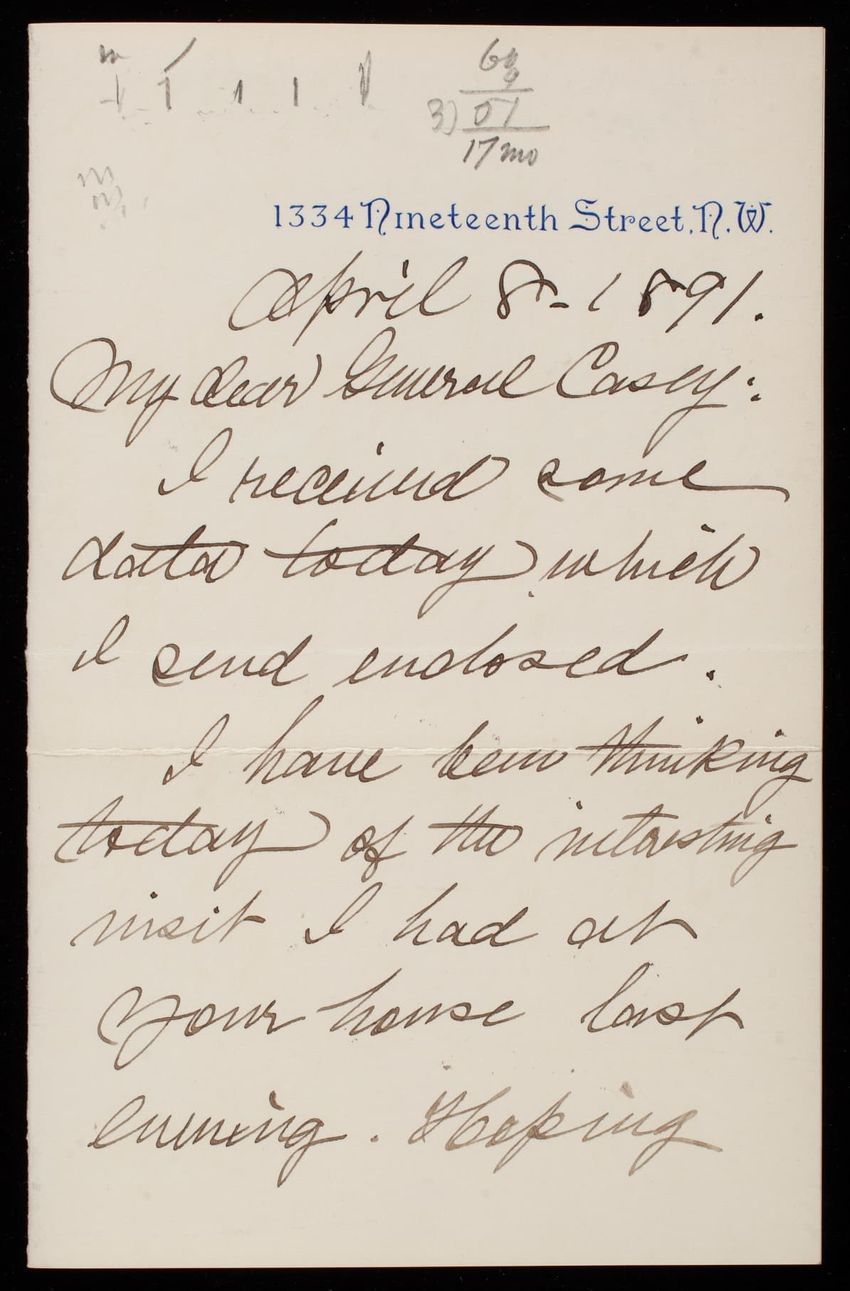 6
9
3) 51
17 mo
1334 Nineteenth Street, N.W.
April 8-1891.
My dear General Casey:
I received some
data today which
I send enclosed.
I have been thinking
today of the interesting
visit I had at
your house last
evening. Hoping